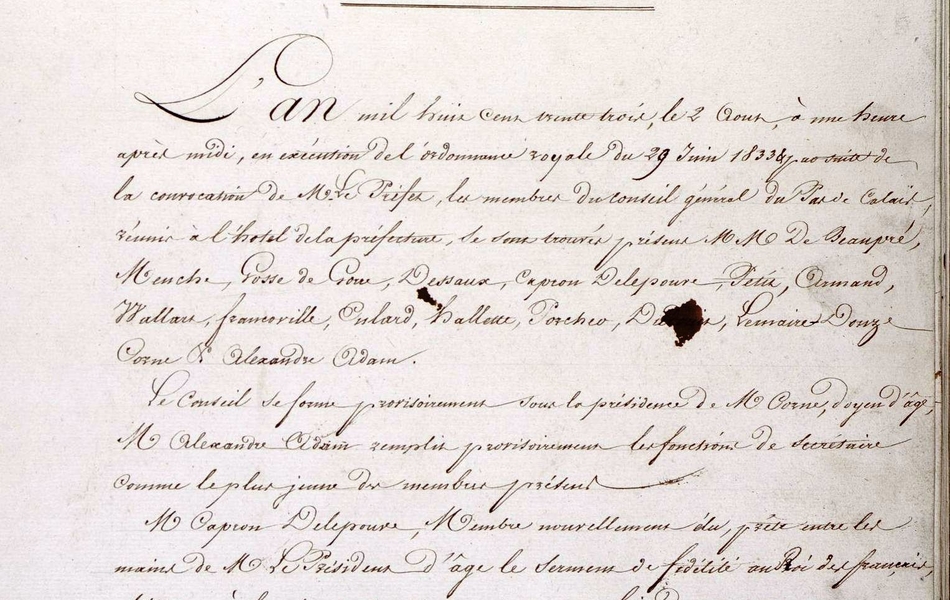 L'an mil huit cent trente trois, le 2 Aout, à une heure
après midi, en exécution de l'ordonnance royale du 29 Juin 1833 & par suite de
la convocation de M. Le Préfet, les membres du conseil général du Pas de Calais,
réunis à l'hotel de la préfecture, se sont trouvés présens MM De Beaupré,
Menche, Gosse de Gorre, Dessaux, Capron Delepouve, Petit, Armand,
Wallart, francoville, Enlard, hallette, Porcheo, Lemaire Douze
Corne & Alexandre Adam.
Le Conseil se forme provisoirement sous la présidence de M Corne, doyen d'âge,
M Alexandre Adam remplit provisoirement les fonctions de Secretaire
comme le plus jeune des membres présens
M Capron Delepouve, Membre nouvellement élu, prête entre les
mains de M Le Président d'âge le Serment de fidélité au Roi des français,